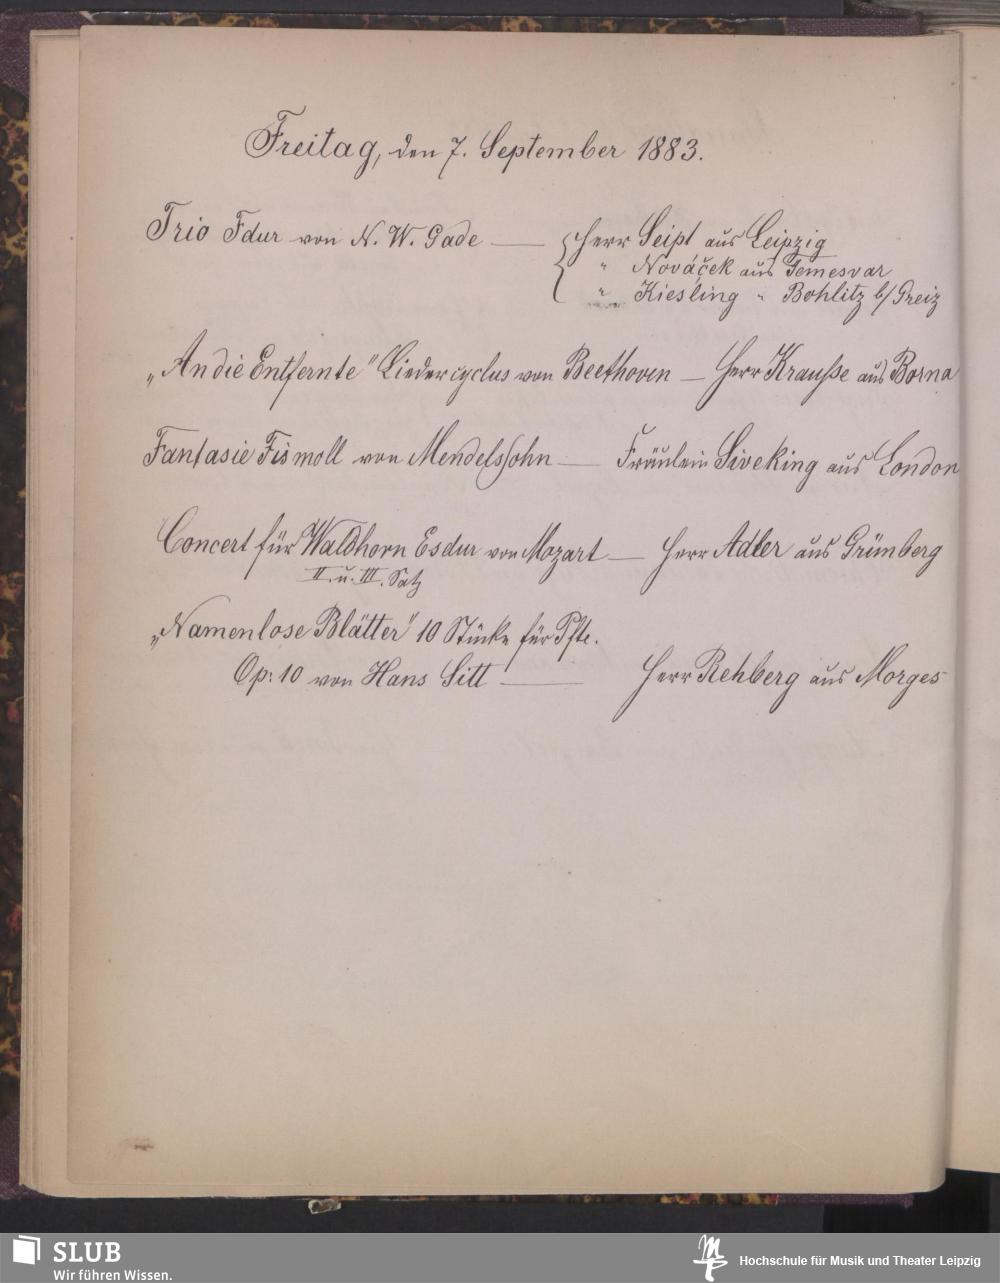 Freitag, den 7. September 1883.
Trio Fdur von N. W. Gade — Herr Seipt aus Leipzig
" Nováček aus Temesvar
" Kiesling " Bohlitz b/Greiz
„An die Entfernte" Liedercyclus von Beethoven — Herr Krauße aus Borna
Fantasie Fismoll von Mendelssohn — Fräulein Siveking aus London
Concert für Waldhorn Esdur von Mozart — Herr Adler aus Grümberg
II. u. III. Satz
„Namenlose Blätter" 10 Stücke für Pfte.
Op: 10 von Hans Sitt — Herr Rehberg aus Morges
SLUB
Wir führen Wissen.
Hochschule für Musik und Theater Leipzig